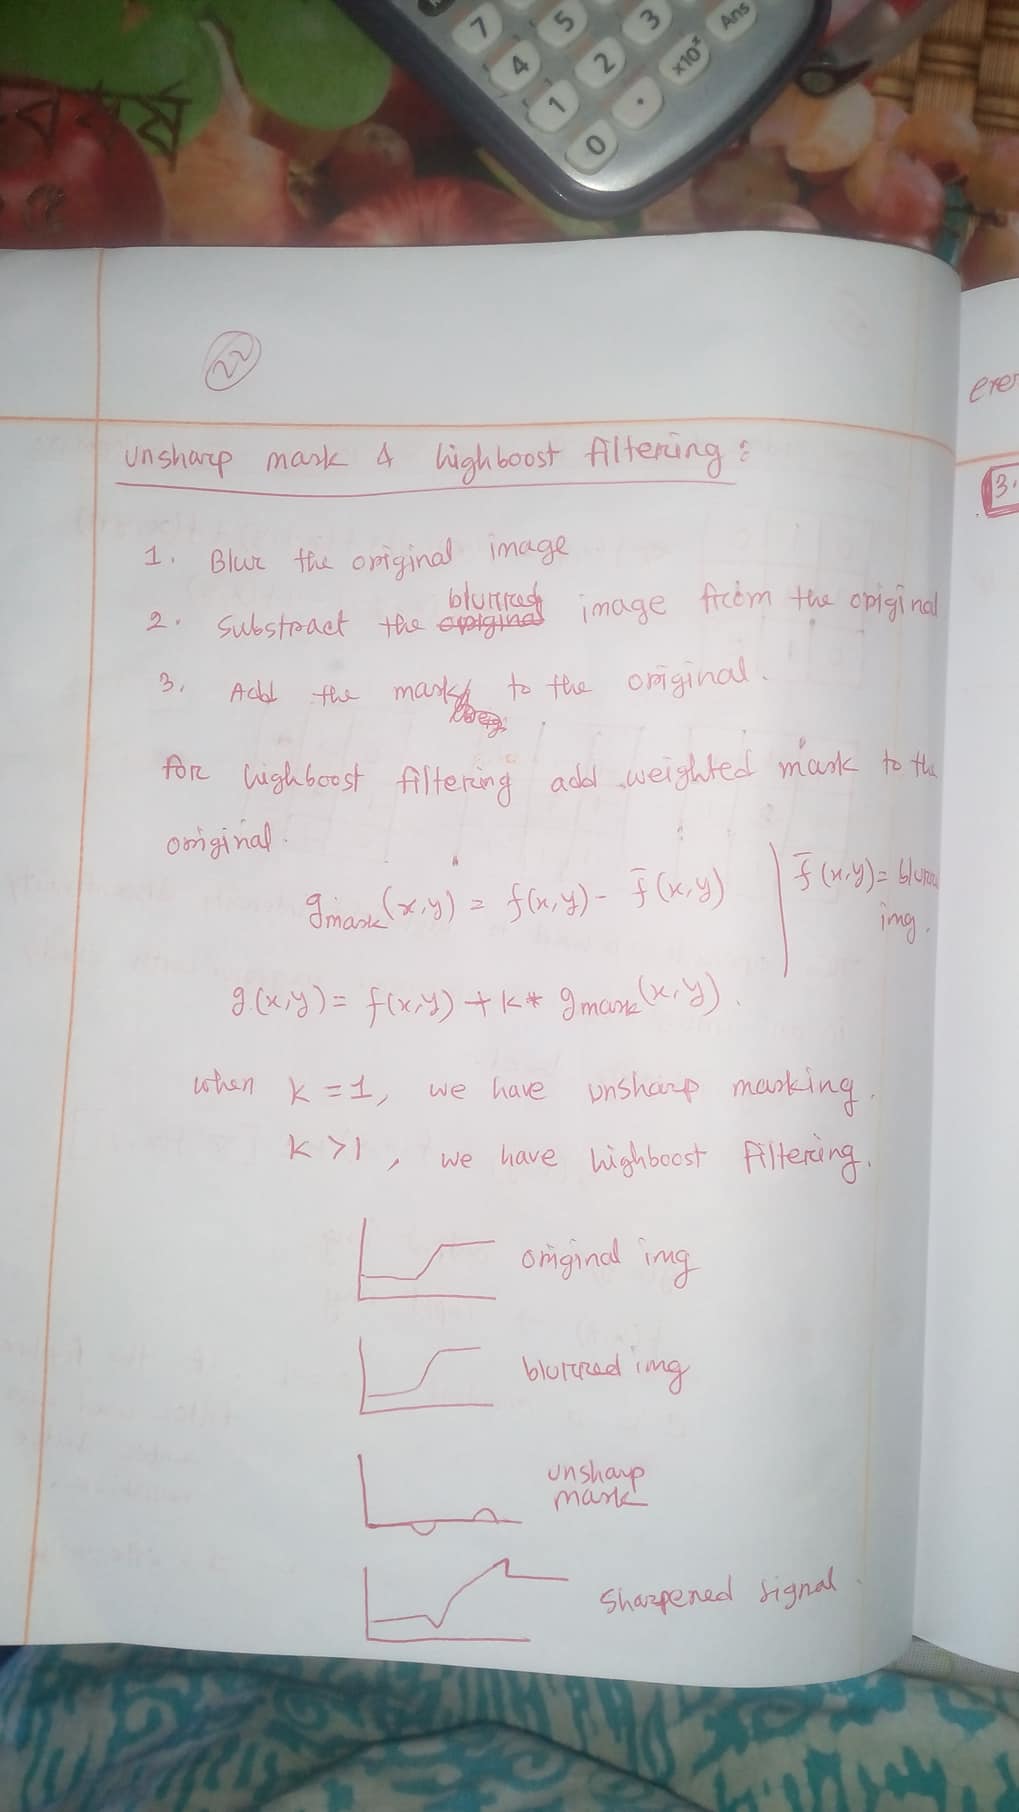 7
5
3
Ans
4
2
×10ˣ
1
.
0
22
ere
3.
Unsharp mask & highboost filtering:
1. Blur the original image
2. Substract the original blurred image from the original
3. Add the mask to the original.
for highboost filtering add weighted mask to the
original.
gmask(x,y) = f(x,y) - f̄(x,y)
f̄(x,y) =
img.
g(x,y) = f(x,y) + k* gmask(x,y).
when k = 1, we have unsharp masking.
k >1, we have highboost filtering.
original img
blurred img
unsharp
mask
sharpened signal